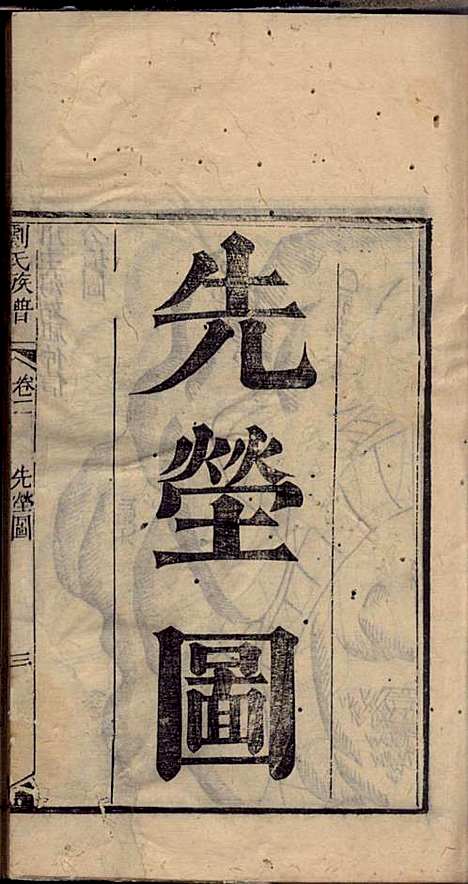 先塋圖
劉氏族普
卷二
先塋圖
三